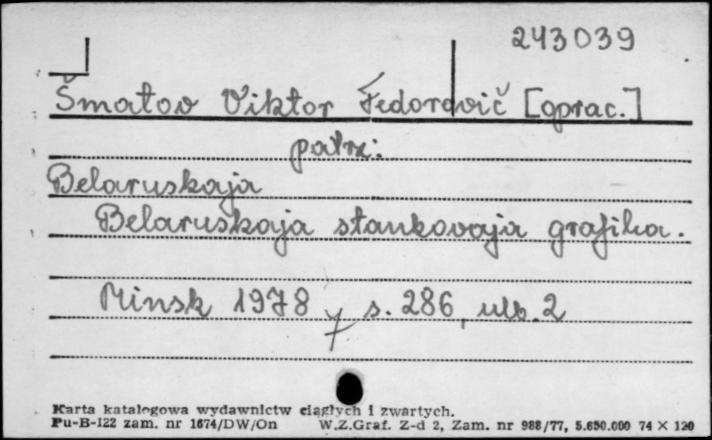 243039
Šmatov Viktor Fedorovič [oprac.]
patrz:
Belaruskaja
Belaruskaja stankovaja grafika.
Minsk 1978, s. 286, ulb. 2
Karta katalogowa wydawnictw ciągłych i zwartych.
Pu-B-122 zam. nr 1674/DW/On W.Z.Graf. Z-d 2, Zam. nr 988/77, 5.650.000 74 X 120